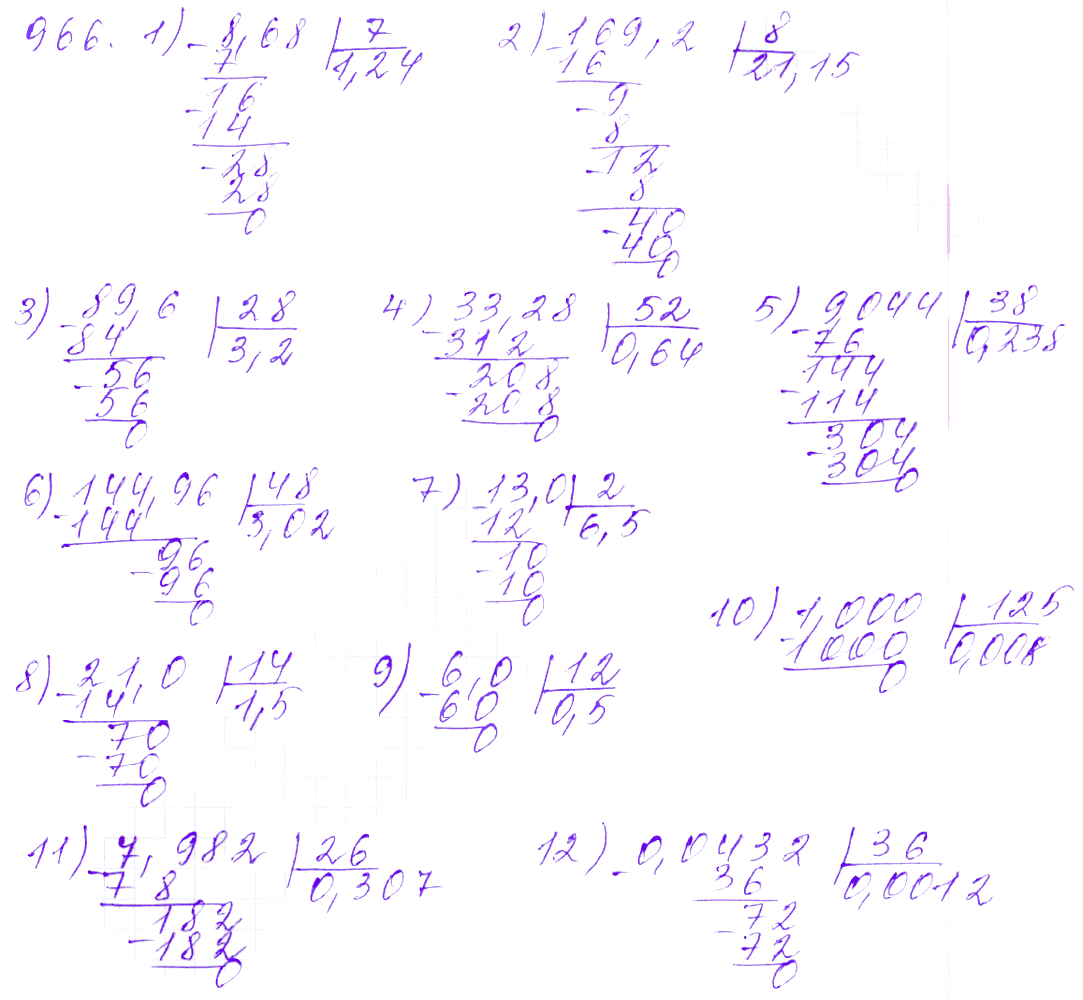 966. 1) -8,68 | 7
7 1,24
-16
14
-28
28
0
2) -169,2 | 8
16 21,15
-9
8
-12
8
-40
40
0
3) -89,6 | 28
84 3,2
-56
56
0
4) -33,28 | 52
312 0,64
-208
208
0
5) -9,044 | 38
76 0,238
144
-114
-304
304
0
6) -144,96 | 48
144 3,02
-96
96
0
7) -13,0 | 2
12 6,5
-10
10
0
8) -21,0 | 14
14 1,5
-70
70
0
9) -6,0 | 12
60 0,5
0
10) -1,000 | 125
1000 0,008
0
11) -7,982 | 26
78 0,307
-182
182
0
12) -0,0432 | 36
36 0,0012
-72
72
0